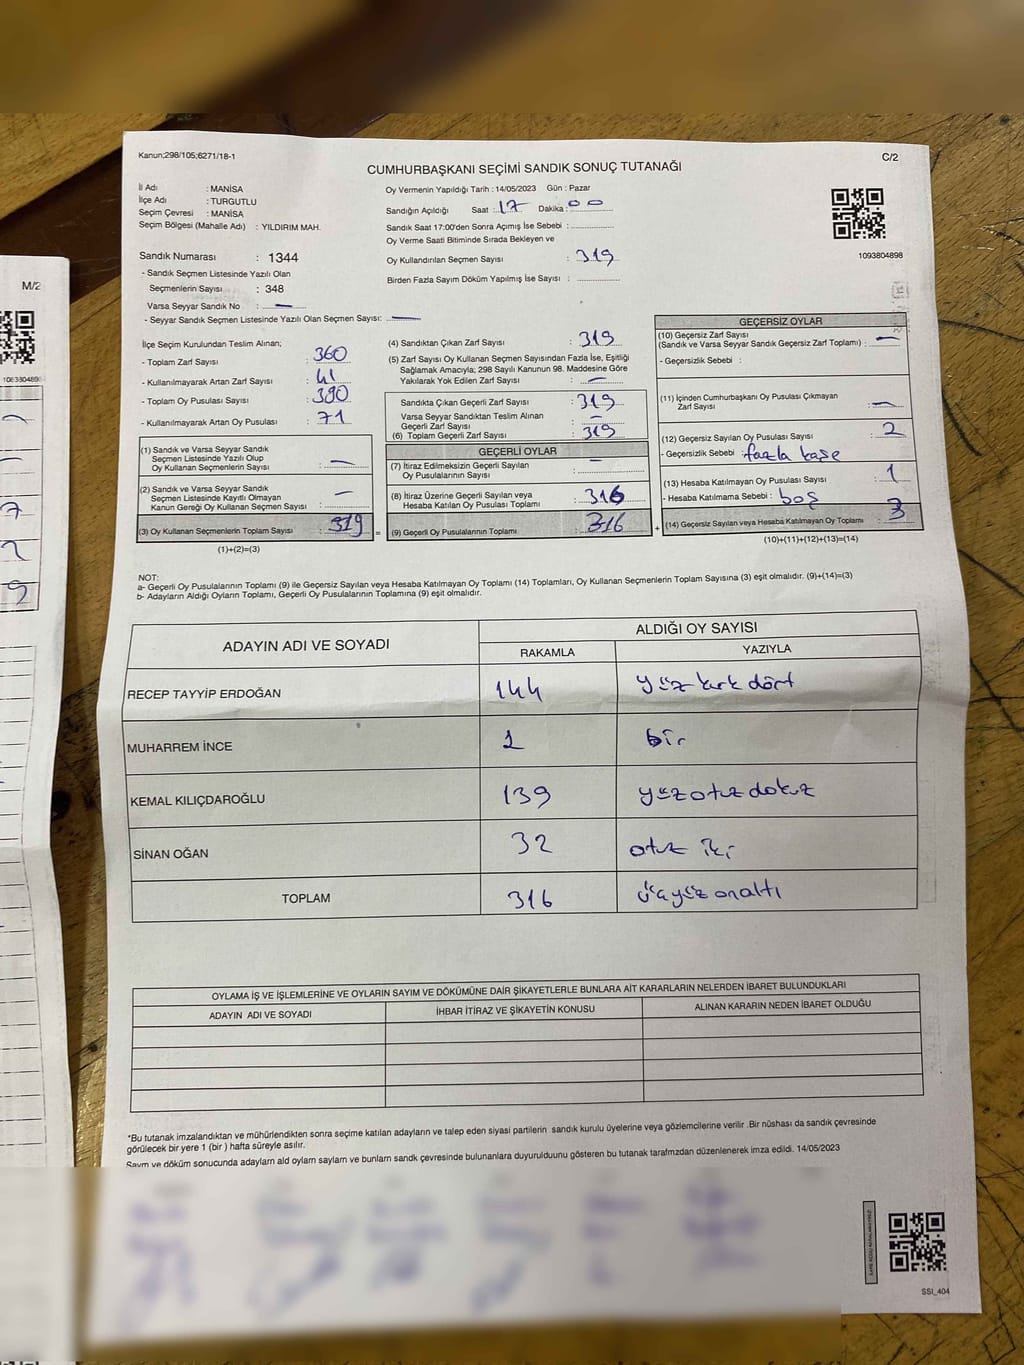 Kanun;298/105;6271/18-1
C/2
CUMHURBAŞKANI SEÇİMİ SANDIK SONUÇ TUTANAĞI
İl Adı : MANİSA
İlçe Adı : TURGUTLU
Seçim Çevresi : MANİSA
Seçim Bölgesi (Mahalle Adı) : YILDIRIM MAH.
Sandık Numarası : 1344
- Sandık Seçmen Listesinde Yazılı Olan
Seçmenlerin Sayısı : 348
Varsa Seyyar Sandık No : —
- Seyyar Sandık Seçmen Listesinde Yazılı Olan Seçmen Sayısı: —
Oy Vermenin Yapıldığı Tarih : 14/05/2023 Gün : Pazar
Sandığın Açıldığı Saat : 17 Dakika : 00
Sandık Saat 17:00'den Sonra Açımış İse Sebebi :
Oy Verme Saati Bitiminde Sırada Bekleyen ve
Oy Kullandırılan Seçmen Sayısı : 319
Birden Fazla Sayım Döküm Yapılmış İse Sayısı :
1093804898
İlçe Seçim Kurulundan Teslim Alınan;
- Toplam Zarf Sayısı : 360
- Kullanılmayarak Artan Zarf Sayısı : 41
- Toplam Oy Pusulası Sayısı : 390
- Kullanılmayarak Artan Oy Pusulası : 71
(1) Sandık ve Varsa Seyyar Sandık
Seçmen Listesinde Yazılı Olup
Oy Kullanan Seçmenlerin Sayısı : —
(2) Sandık ve Varsa Seyyar Sandık
Seçmen Listesinde Kayıtlı Olmayan
Kanun Gereği Oy Kullanan Seçmen Sayısı : —
(3) Oy Kullanan Seçmenlerin Toplam Sayısı : 319
(1)+(2)=(3)
(4) Sandıktan Çıkan Zarf Sayısı : 319
(5) Zarf Sayısı Oy Kullanan Seçmen Sayısından Fazla İse, Eşitliği
Sağlamak Amacıyla; 298 Sayılı Kanunun 98. Maddesine Göre
Yakılarak Yok Edilen Zarf Sayısı : —
Sandıkta Çıkan Geçerli Zarf Sayısı : 319
Varsa Seyyar Sandıktan Teslim Alınan
Geçerli Zarf Sayısı : —
(6) Toplam Geçerli Zarf Sayısı : 319
GEÇERLİ OYLAR
(7) İtiraz Edilmeksizin Geçerli Sayılan
Oy Pusulalarının Sayısı : —
(8) İtiraz Üzerine Geçerli Sayılan veya
Hesaba Katılan Oy Pusulası Toplamı : 316
(9) Geçerli Oy Pusulalarının Toplamı : 316
GEÇERSİZ OYLAR
(10) Geçersiz Zarf Sayısı
(Sandık ve Varsa Seyyar Sandık Geçersiz Zarf Toplamı) : —
- Geçersizlik Sebebi :
(11) İçinden Cumhurbaşkanı Oy Pusulası Çıkmayan
Zarf Sayısı : —
(12) Geçersiz Sayılan Oy Pusulası Sayısı : 2
- Geçersizlik Sebebi : fazla kaşe
(13) Hesaba Katılmayan Oy Pusulası Sayısı : 1
- Hesaba Katılmama Sebebi : boş
(14) Geçersiz Sayılan veya Hesaba Katılmayan Oy Toplamı : 3
(10)+(11)+(12)+(13)=(14)
NOT:
a- Geçerli Oy Pusulalarının Toplamı (9) ile Geçersiz Sayılan veya Hesaba Katılmayan Oy Toplamı (14) Toplamları, Oy Kullanan Seçmenlerin Toplam Sayısına (3) eşit olmalıdır. (9)+(14)=(3)
b- Adayların Aldığı Oyların Toplamı, Geçerli Oy Pusulalarının Toplamına (9) eşit olmalıdır.
ADAYIN ADI VE SOYADI
ALDIĞI OY SAYISI
RAKAMLA YAZIYLA
RECEP TAYYİP ERDOĞAN 144 yüz kırk dört
MUHARREM İNCE 1 bir
KEMAL KILIÇDAROĞLU 139 yüz otuz dokuz
SİNAN OĞAN 32 otuz iki
TOPLAM 316 üçyüz onaltı
OYLAMA İŞ VE İŞLEMLERİNE VE OYLARIN SAYIM VE DÖKÜMÜNE DAİR ŞİKAYETLERLE BUNLARA AİT KARARLARIN NELERDEN İBARET BULUNDUKLARI
ADAYIN ADI VE SOYADI İHBAR İTİRAZ VE ŞİKAYETİN KONUSU ALINAN KARARIN NEDEN İBARET OLDUĞU
*Bu tutanak imzalandıktan ve mühürlendikten sonra seçime katılan adayların ve talep eden siyasi partilerin sandık kurulu üyelerine veya gözlemcilerine verilir .Bir nüshası da sandık çevresinde
görülecek bir yere 1 (bir ) hafta süreyle asılır.
Sayım ve döküm sonucunda adayların ald oyların sayların ve bunların sandk çevresinde bulunanlara duyurulduunu gösteren bu tutanak tarafmzdan düzenlenerek imza edildi. 14/05/2023
SSI_404
M/2
7
2
9